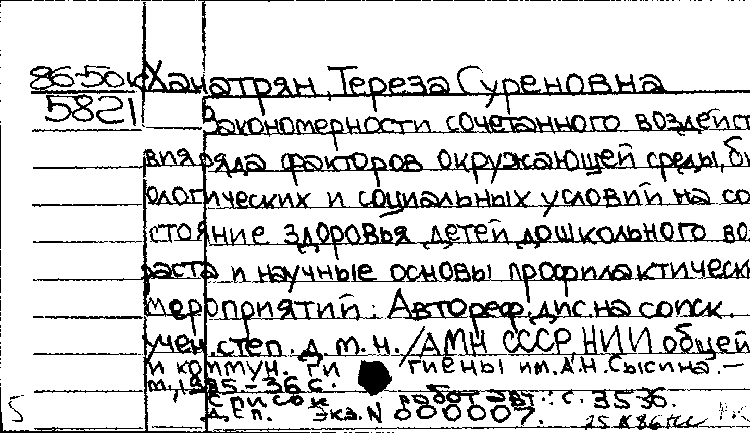 86-50к Ханатрян, Тереза Суреновна
5821
Закономерности сочетанного воздейст
вия ряда факторов окружающей среды, би
ологических и социальных условий на со
стояние здоровья детей дошкольного во
раста и научные основы профилактическ
мероприятий: Автореф. дис. на соиск.
учен. степ. д. м. н. /АМН СССР НИИ общей
и коммун. гигиены им. А.Н. Сысина. –
м., 1985 – 36 с.
Список работ авт.: с. 35-36.
Д.еп. Экз. N 000007.
5